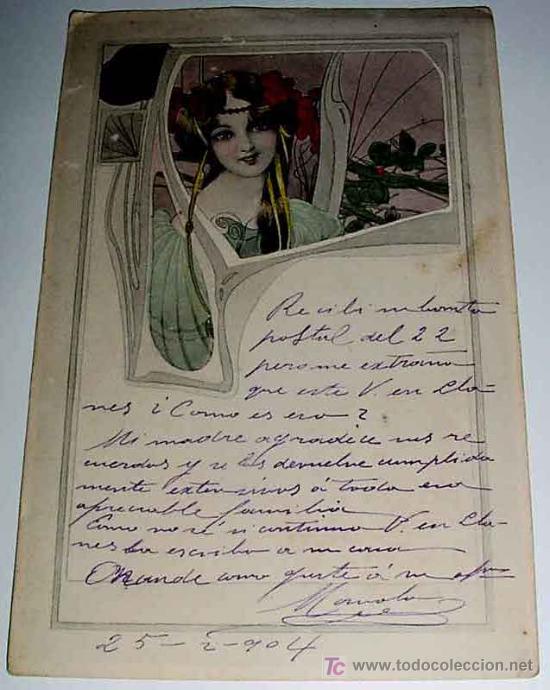 Recibi su bonita
postal del 22
pero me extraña
que este V. en Lla-
nes ¿Como es eso?
Mi madre agradece sus re
cuerdos y se los devuelve cumplida
mente extensivos á toda esa
apreciable familia
Como no sé si continua V. en Lla-
nes La escribo a su casa
Mande como guste á su
Manolo
25-2-904
TC www.todocoleccion.net